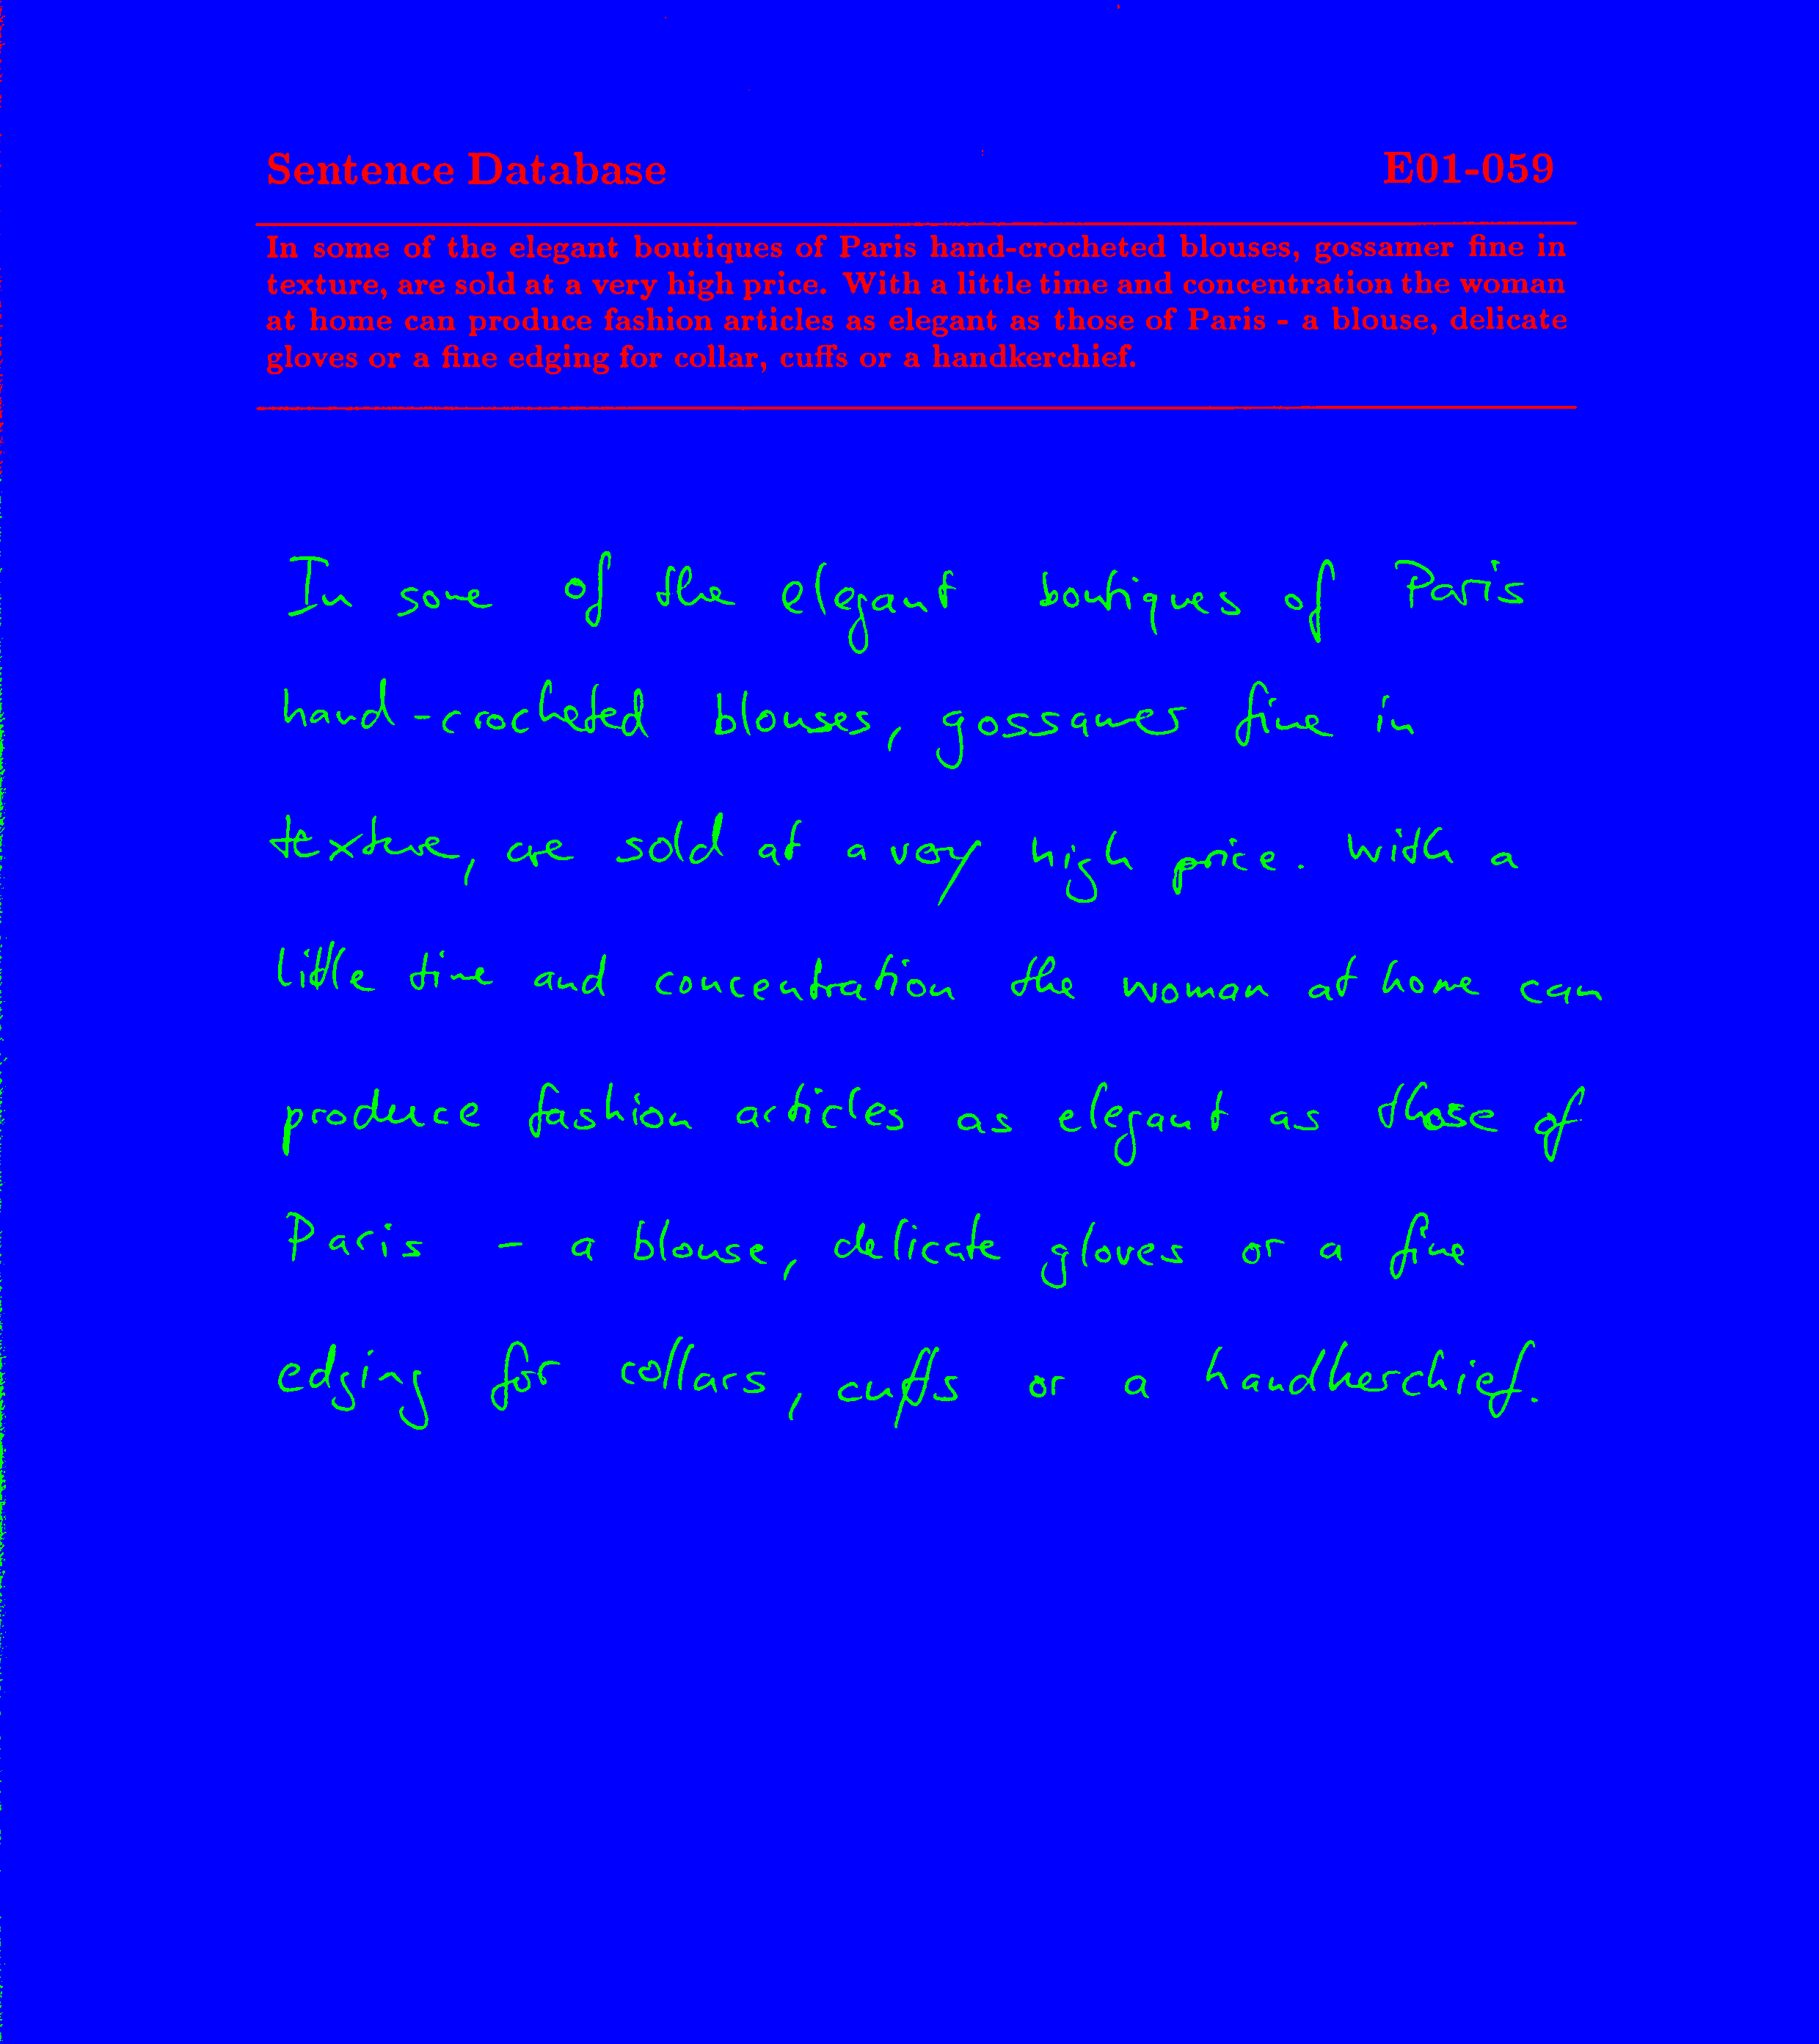 Sentence Database E01-059
In some of the elegant boutiques of Paris hand-crocheted blouses, gossamer fine in
texture, are sold at a very high price. With a little time and concentration the woman
at home can produce fashion articles as elegant as those of Paris - a blouse, delicate
gloves or a fine edging for collar, cuffs or a handkerchief.
In some of the elegant boutiques of Paris
hand-crocheted blouses, gossamer fine in
texture, are sold at a very high price. With a
little time and concentration the woman at home can
produce fashion articles as elegant as those of
Paris - a blouse, delicate gloves or a fine
edging for collars, cuffs or a handkerchief.